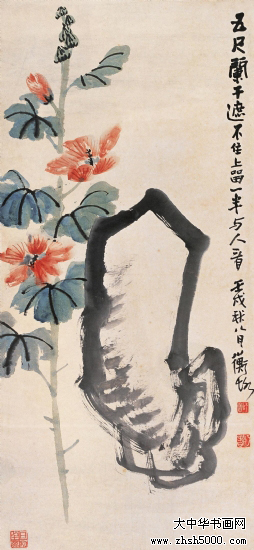 五尺蘭干遮不住上留一半与人看 壬戌秋八月衡恪
大中华书画网
www.zhsh5000.com